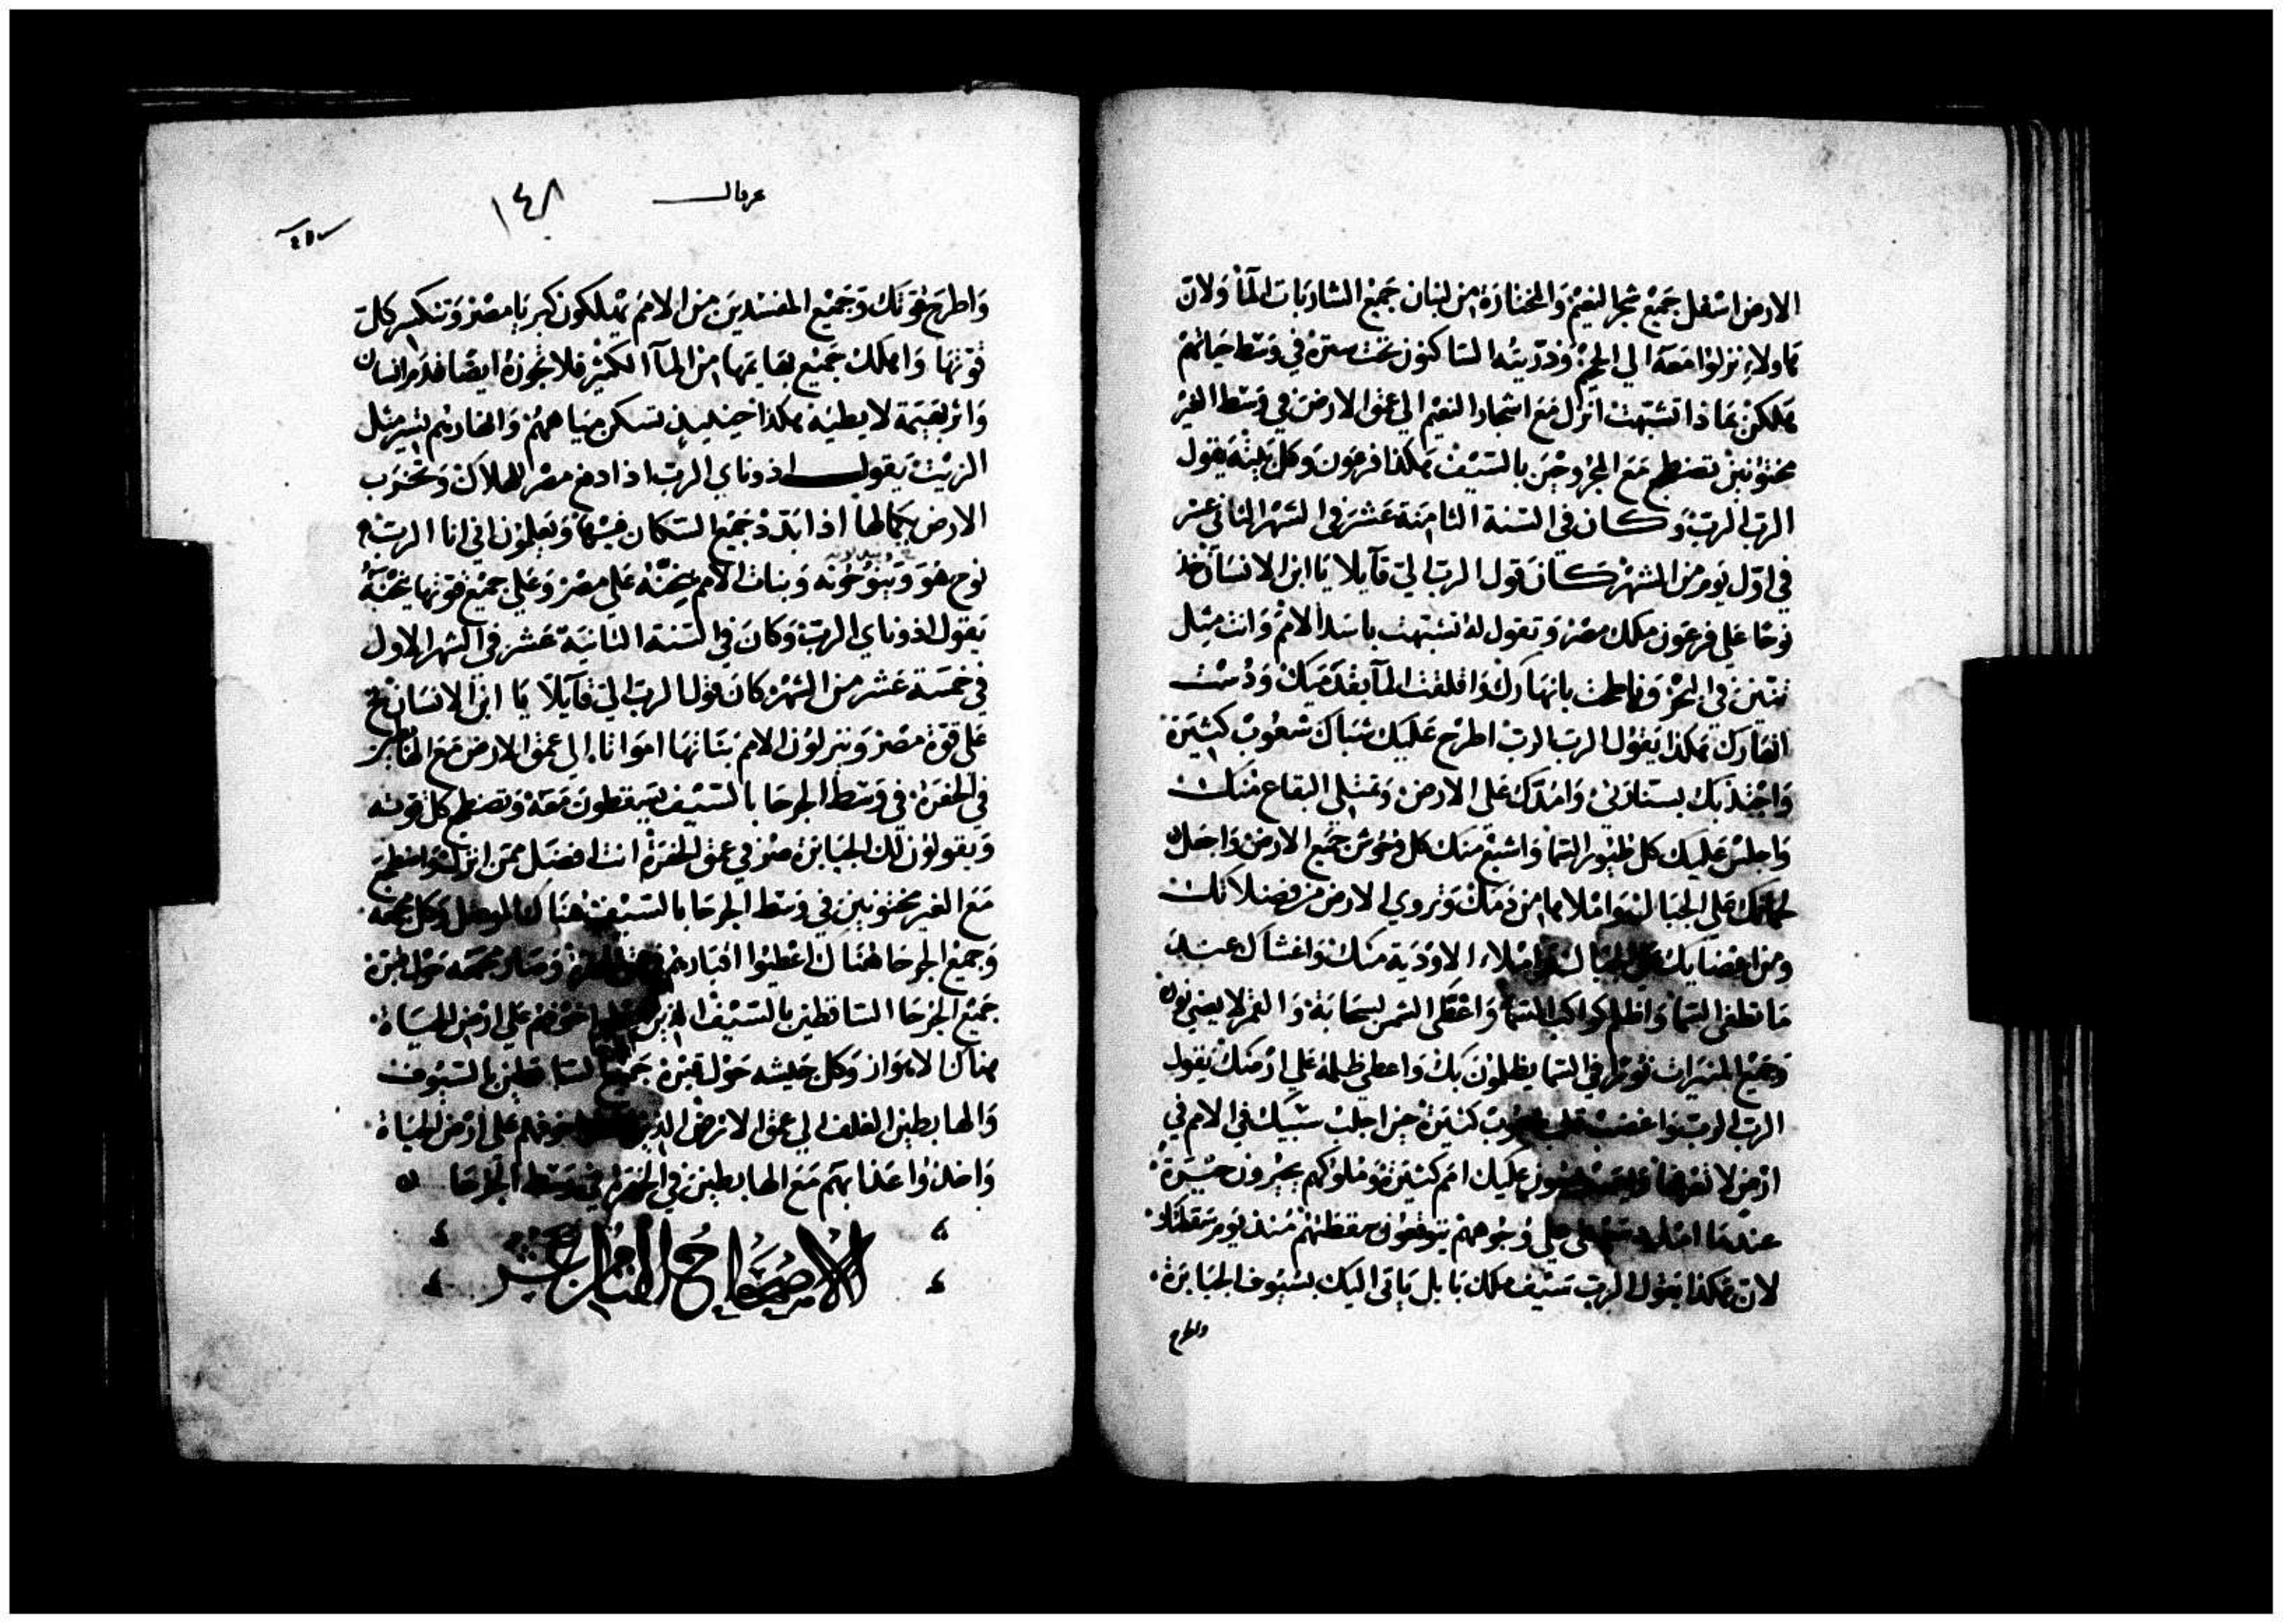 الارض اسفل جميع شجر النعيم والمختارة من لبنان جميع الشاربات المآ ولان
هاولاء نزلوا معه الي الجحيم وذريته الساكنون تحت ستره في وسط حياتهم
هلكن بماذا تشبهت انزل مع اشجار النعيم الي عمق الارض في وسط الغير
مختونين تضطجع مع المجروحين بالسيف هكذا فرعون وكل يقول
الرب الرب وكان في السنة الثامنة عشر في الشهر الثاني عشر
في اول يوم من الشهر كان قول الرب الي قآيلا يا ابن الانسان خذ
نوحا علي فرعون ملك مصر وتقول له تشبهت باسد الامم وانت مثل
تنين في البحر وناطحت بانهارك واقلقت المآ بقدميك ودست
انهارك هكذا يقول الرب الرب اطرح عليك شباك شعوب كثيرة
واجذبك بسنارتي وامدك علي الارض وتمتلي البقاع منك
واجلس عليك كل طيور السما واشبع منك كل وحوش جميع الارض واجعل
لحمانك علي الجبال واملاها من دمك وتروي الارض من فضلاتك
ومن اعضايك علي الجبال واملاء الاودية منك واغشاك عند
ما تطفي السما واظلم كواكب السما واغطي الشمس بسحابة والقمر لا يضي نوره
وجميع المنيرات نورا في السما يظلمون بك واعطي ظلمة علي ارضك يقول
الرب الرب واغضب قلب شعوب كثيرة حين اجلب سبيك في الامم في
ارض لا تعرفها عليك امم كثيرة وملوكهم بحيرون حيرة
عندما علي وجوههم يتوقعون سقطتهم منذ يوم سقطتك
لان هكذا يقول الرب سيف ملك بابل ياتي اليك بسيوف الجبابرة
واطرح
١٤٨
واطرح قوتك وجميع المفسدين من الامم يهلكون كبريا مصر وتنكسر كل
قوتها واهلك جميع بهايمها من المآ الكثير فلا تجوزه ايضا قدم انسان
واثر بهيمة لا يطيه هكذا حينيذ تسكن مياههم وانهارهم تسير مثل
الزيت يقول اذوناي الرب اذا ادفع مصر للهلاك وتخرب
الارض بكمالها اذا ابدد جميع السكان فيها ويعلمون اني انا الرب
نوح هو وبنات الامم علي مصر وعلي جميع قوتها
يقول اذوناي الرب وكان في السنة الثانية عشر في الشهر الاول
في خمسة عشر من الشهر كان قول الرب الي قآيلا يا ابن الانسان نح
علي قوة مصر وينزلون الامم بناتها امواتا الي عمق الارض مع
في الحفرة في وسط الجرحا بالسيف يسقطون معه وتضطجع كل قوته
ويقولون لك الجبابرة صر في عمق الحفرة انت افضل ممن انزل واضطجع
مع الغير مختونين في وسط الجرحا بالسيف هناك الموصل وكل جمعه
وجميع الجرحا هناك اعطيوا اقبارهم وصار جمعه حول قبره
جميع الجرحا الساقطين بالسيف الذين خوفهم علي ارض الحياة
هناك الاهواز وكل جيشه حول قبره جميع الساقطين بالسيوف
والهابطين الغلف الي عمق الارض الذين خوفهم علي ارض الحياة
واخذوا عذابهم مع الهابطين في الحفرة في وسط الجرحا
الاصحاح الثامن عشر